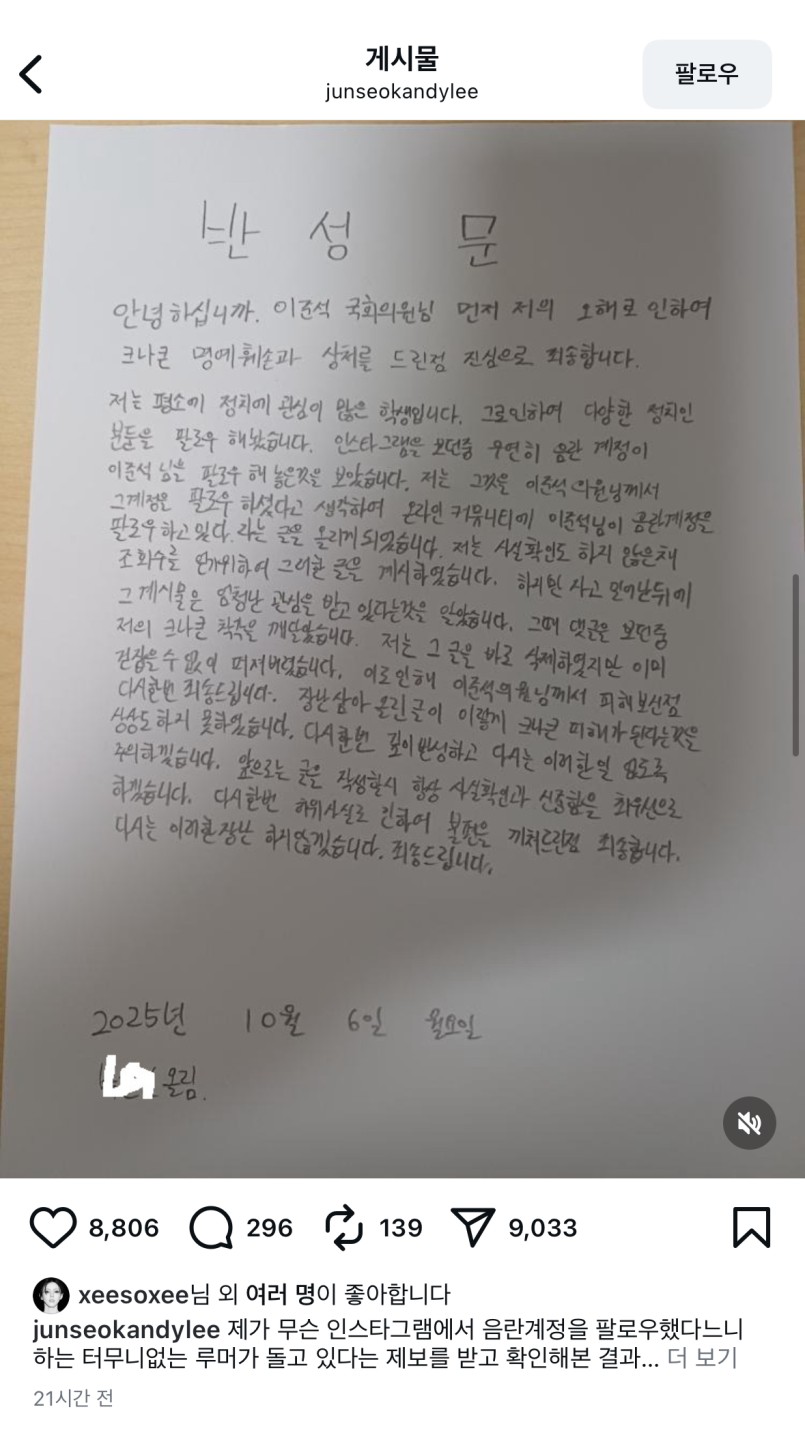 게시물
junseokandylee
팔로우
반 성 문
안녕하십니까. 이준석 국회의원님 먼저 저의 오해로 인하여
크나큰 명예훼손과 상처를 드린점 진심으로 죄송합니다.
저는 평소에 정치에 관심이 많은 학생입니다. 그로인하여 다양한 정치인
분들을 팔로우 해놨습니다. 인스타그램을 보던중 우연히 음란 계정이
이준석 님을 팔로우 해 놓은것을 보았습니다. 저는 그것을 이준석 의원님께서
그계정은 팔로우 하셨다고 생각하여 온라인 커뮤니티에 이준석님이 음란계정을
팔로우하고있다.라는 글을 올리게되었습니다. 저는 사실확인도 하지 않은채
조회수를 위하여 그러한 글을 게시하였습니다. 하지만 사고 일어난뒤에
그 게시물은 엄청난 관심을 받고 있다는것을 알았습니다. 그때 댓글은 보던중
저의 크나큰 착각을 깨달았습니다. 저는 그 글을 바로 삭제하였지만 이미
걷잡을 수 없이 퍼져버렸습니다. 이로인해 이준석의원님께서 피해보신점
다시한번 죄송드립니다. 장난삼아 올린글이 이렇게 크나큰 피해가 된다는것을
상상도 하지 못하였습니다. 다시한번 깊이반성하고 다시는 이러한일 없도록
주의하겠습니다. 앞으로는 글을 작성할시 항상 사실확인과 신중함을 최우선으로
하겠습니다. 다시한번 허위사실로 인하여 불편을 끼쳐드린점 죄송합니다.
다시는 이러한장난 하지않겠습니다. 죄송드립니다.
2025년 10월 6일 월요일
올림.
8,806 296 139 9,033
xeesoxee님 외 여러 명이 좋아합니다
junseokandylee 제가 무슨 인스타그램에서 음란계정을 팔로우했다느니
하는 터무니없는 루머가 돌고 있다는 제보를 받고 확인해본 결과... 더 보기
21시간 전